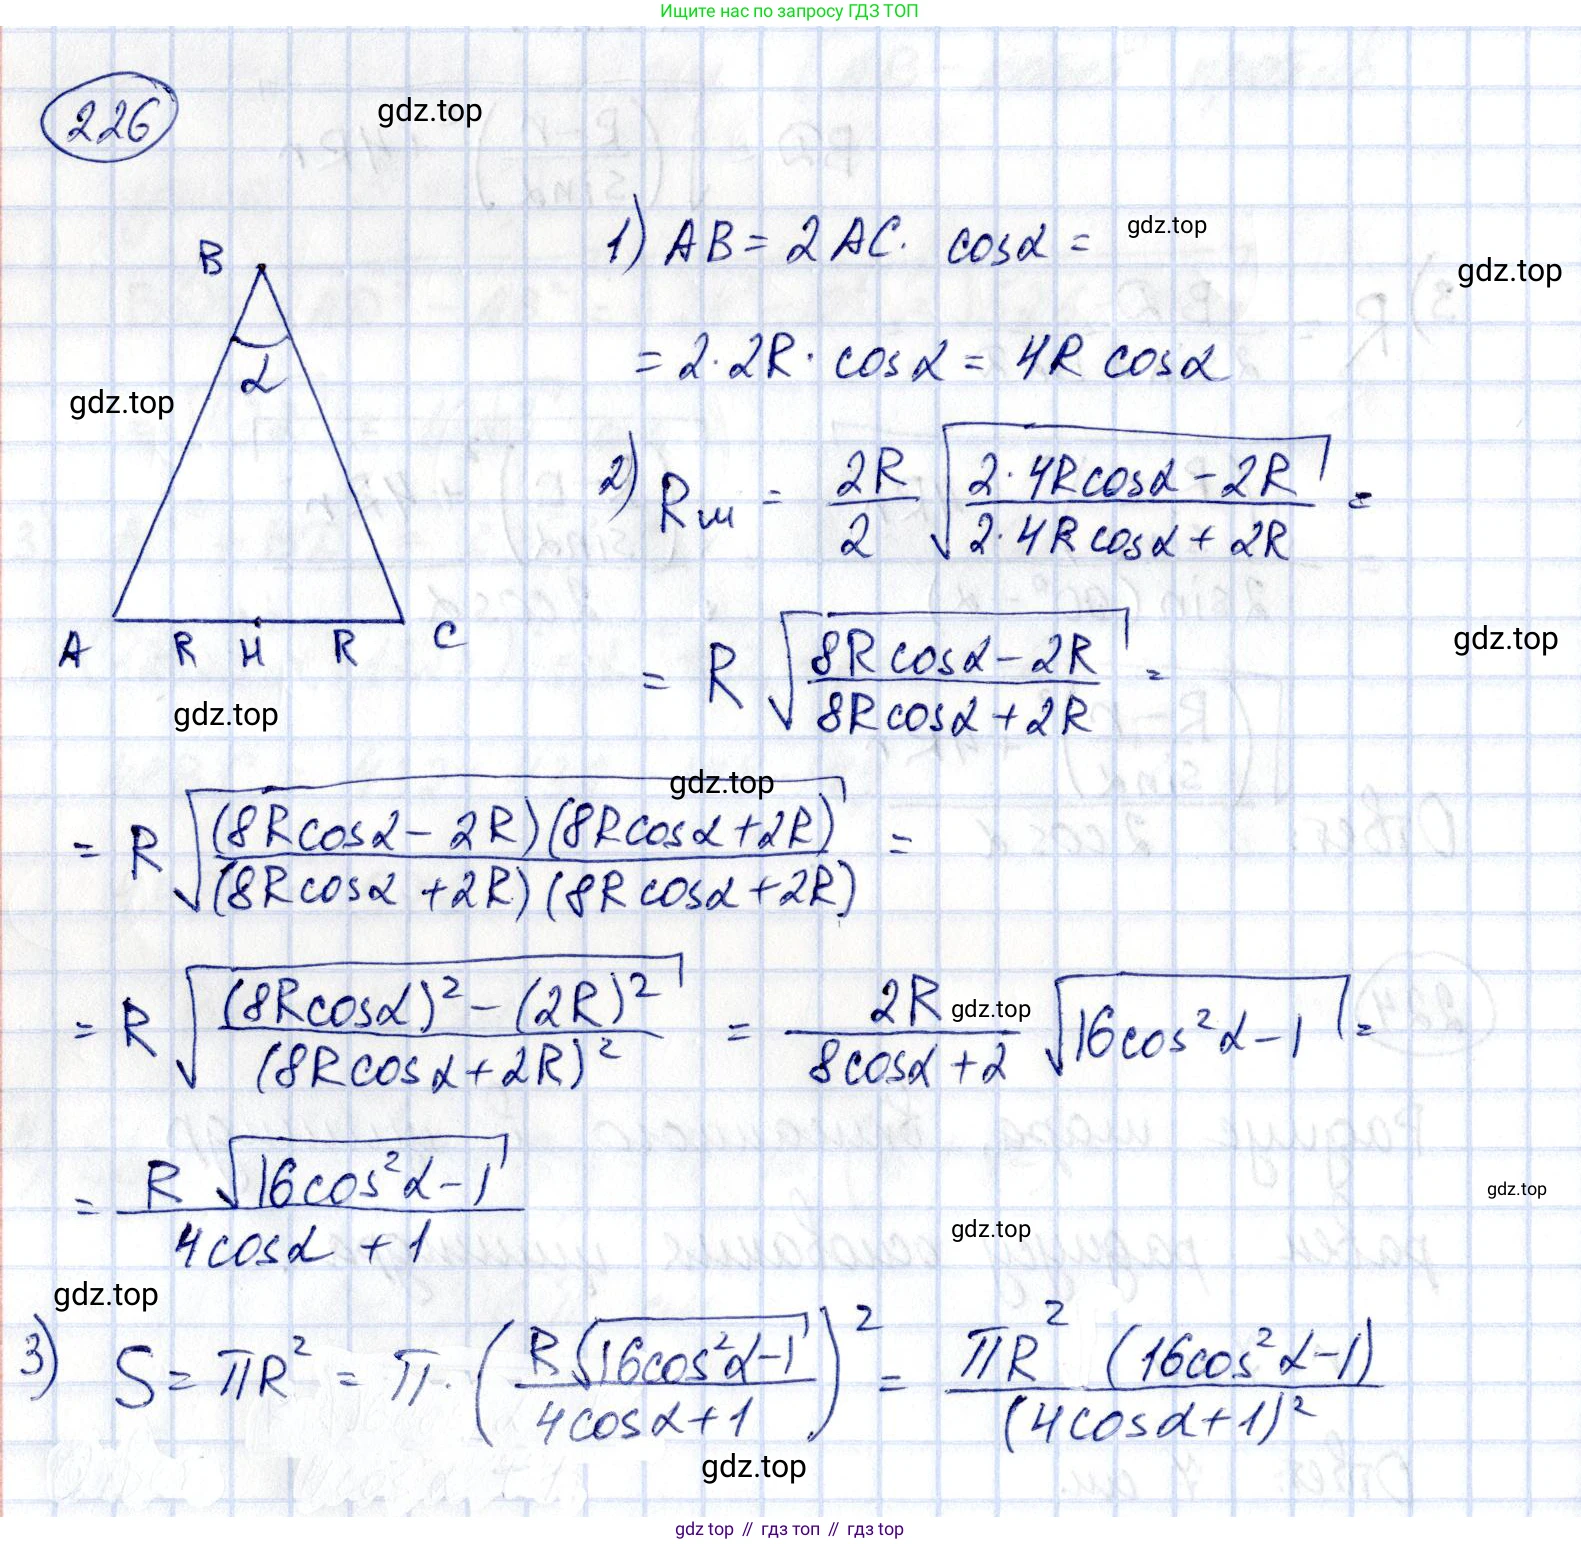 Ищите нас по запросу ГДЗ ТОП
226
gdz.top
1) AB = 2AC · cosα =
gdz.top
gdz.top
= 2·2R · cosα = 4R cosα
B
α
gdz.top
A R H R C
gdz.top
2) Rш = 2R/2 √((2·4Rcosα − 2R)/(2·4Rcosα + 2R)) =
= R √((8Rcosα − 2R)/(8Rcosα + 2R)) =
gdz.top
gdz.top
= R √((8Rcosα − 2R)(8Rcosα + 2R)/(8Rcosα + 2R)(8Rcosα + 2R)) =
gdz.top
= R √(((8Rcosα)² − (2R)²)/(8Rcosα + 2R)²) = 2R/(8cosα + 2) √(16cos²α − 1) =
gdz.top
= R √(16cos²α − 1)/(4cosα + 1)
gdz.top
gdz.top
gdz.top
3) S = πR² = π · (R√(16cos²α − 1)/(4cosα + 1))² = πR² (16cos²α − 1)/(4cosα + 1)²
gdz.top
gdz top // гдз топ // гдз top